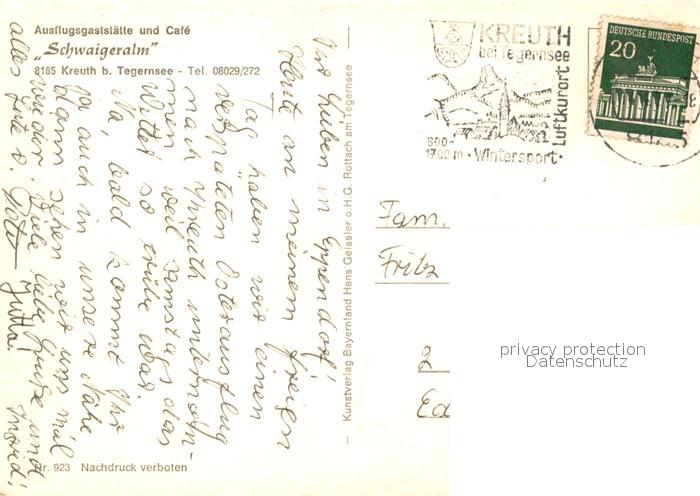 Ausflugsgaststätte und Café
„Schwaigeralm"
8185 Kreuth b. Tegernsee - Tel. 08029/272
Ihr Lieben in Eppendorf!
Heute an meinem freien
Tag haben wir einen
verspäteten Osterausflug
nach Kreuth unternom-
men weil samstags das
Wetter so trübe war.
Na, bald kommt Ihr
ja auch in unsere Nähe
dann sehen wir uns mal
wieder. Viele liebe Grüße und
alles Gute v.
Jutta!
Ingrid!
Nr. 923 Nachdruck verboten
Kunstverlag Bayernland Hans Geissler o.H.G. Rottach am Tegernsee
KREUTH
bei Tegernsee
Luftkurort
800-
1700 m · Wintersport ·
DEUTSCHE BUNDESPOST
20
Fam.
Fritz
2
privacy protection
Datenschutz